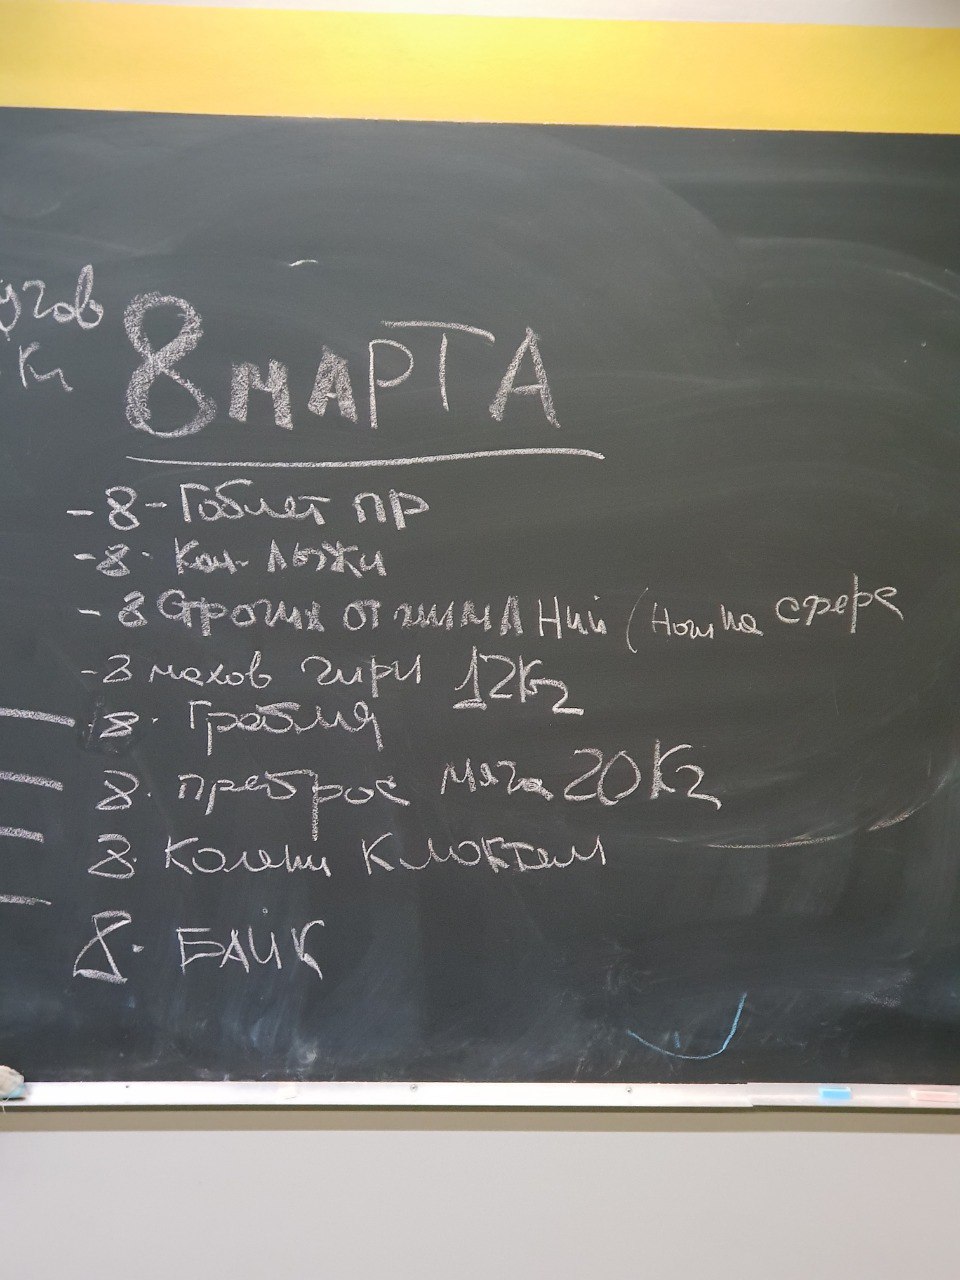 угов
Кг
8 МАРТА
- 8 - Гоблет пр
- 8 - Кал. Лыжи
- 8 Строгих отжиманий (Ноги на сфере
- 8 махов гири 12кг
8. Гребля
8. преброс мяча 20Кг
8 Колени К локтям
8. БАЙК